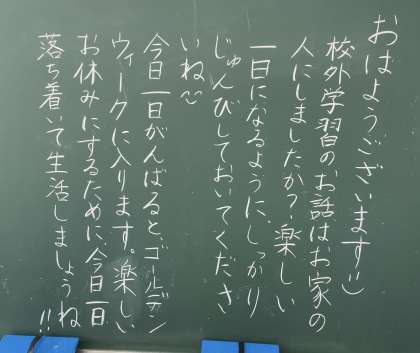 おはようございます:)
校外学習のお話はお家の
人にしましたか?楽しい
一日になるように、しっかり
じゅんびしておいてくださ
いね:)
今日一日がんばると、ゴールデン
ウィークに入ります。楽しい
お休みにするために、今日一日
落ち着いて生活しましょうね
!!